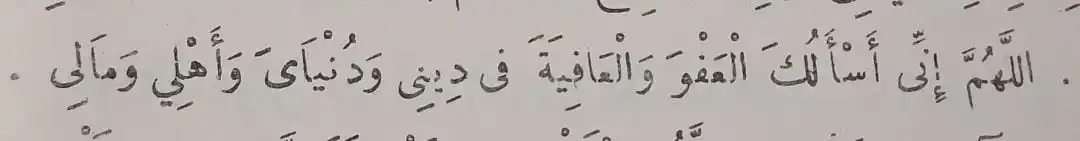 . اللَّهُمَّ إِنِّى أَسْأَلُكَ الْعَفْوَ وَالْعَافِيَةَ فى دِينِى وَدُنْيَاىَ وَأَهْلِي وَمَالِى .